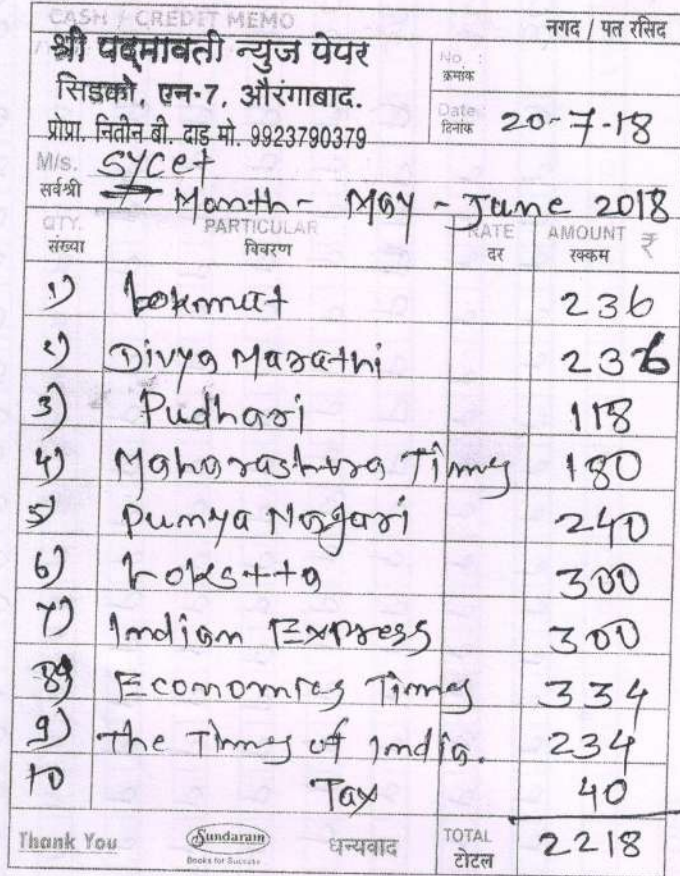 CASH / CREDIT MEMO
नगद / पत रसिद
श्री पद्मावती न्युज पेपर
सिडको, एन-7, औरंगाबाद.
प्रोप्रा. नितीन बी. दाड मो. 9923790379
No. :
क्रमांक
Date
दिनांक 20-7-18
M/s. SYCet
सर्वश्री Month - May - June 2018
QTY. PARTICULAR RATE AMOUNT ₹
संख्या विवरण दर रक्कम
1) Lokmat 236
2) Divya Marathi 236
3) Pudhari 118
4) Maharashtra Times 180
5) Punya Nagari 240
6) Loksatta 300
7) Indian Express 300
8) Economics Times 334
9) The Times of India. 234
10 Tax 40
Thank You Sundaram धन्यवाद TOTAL 2218
Books for Success टोटल